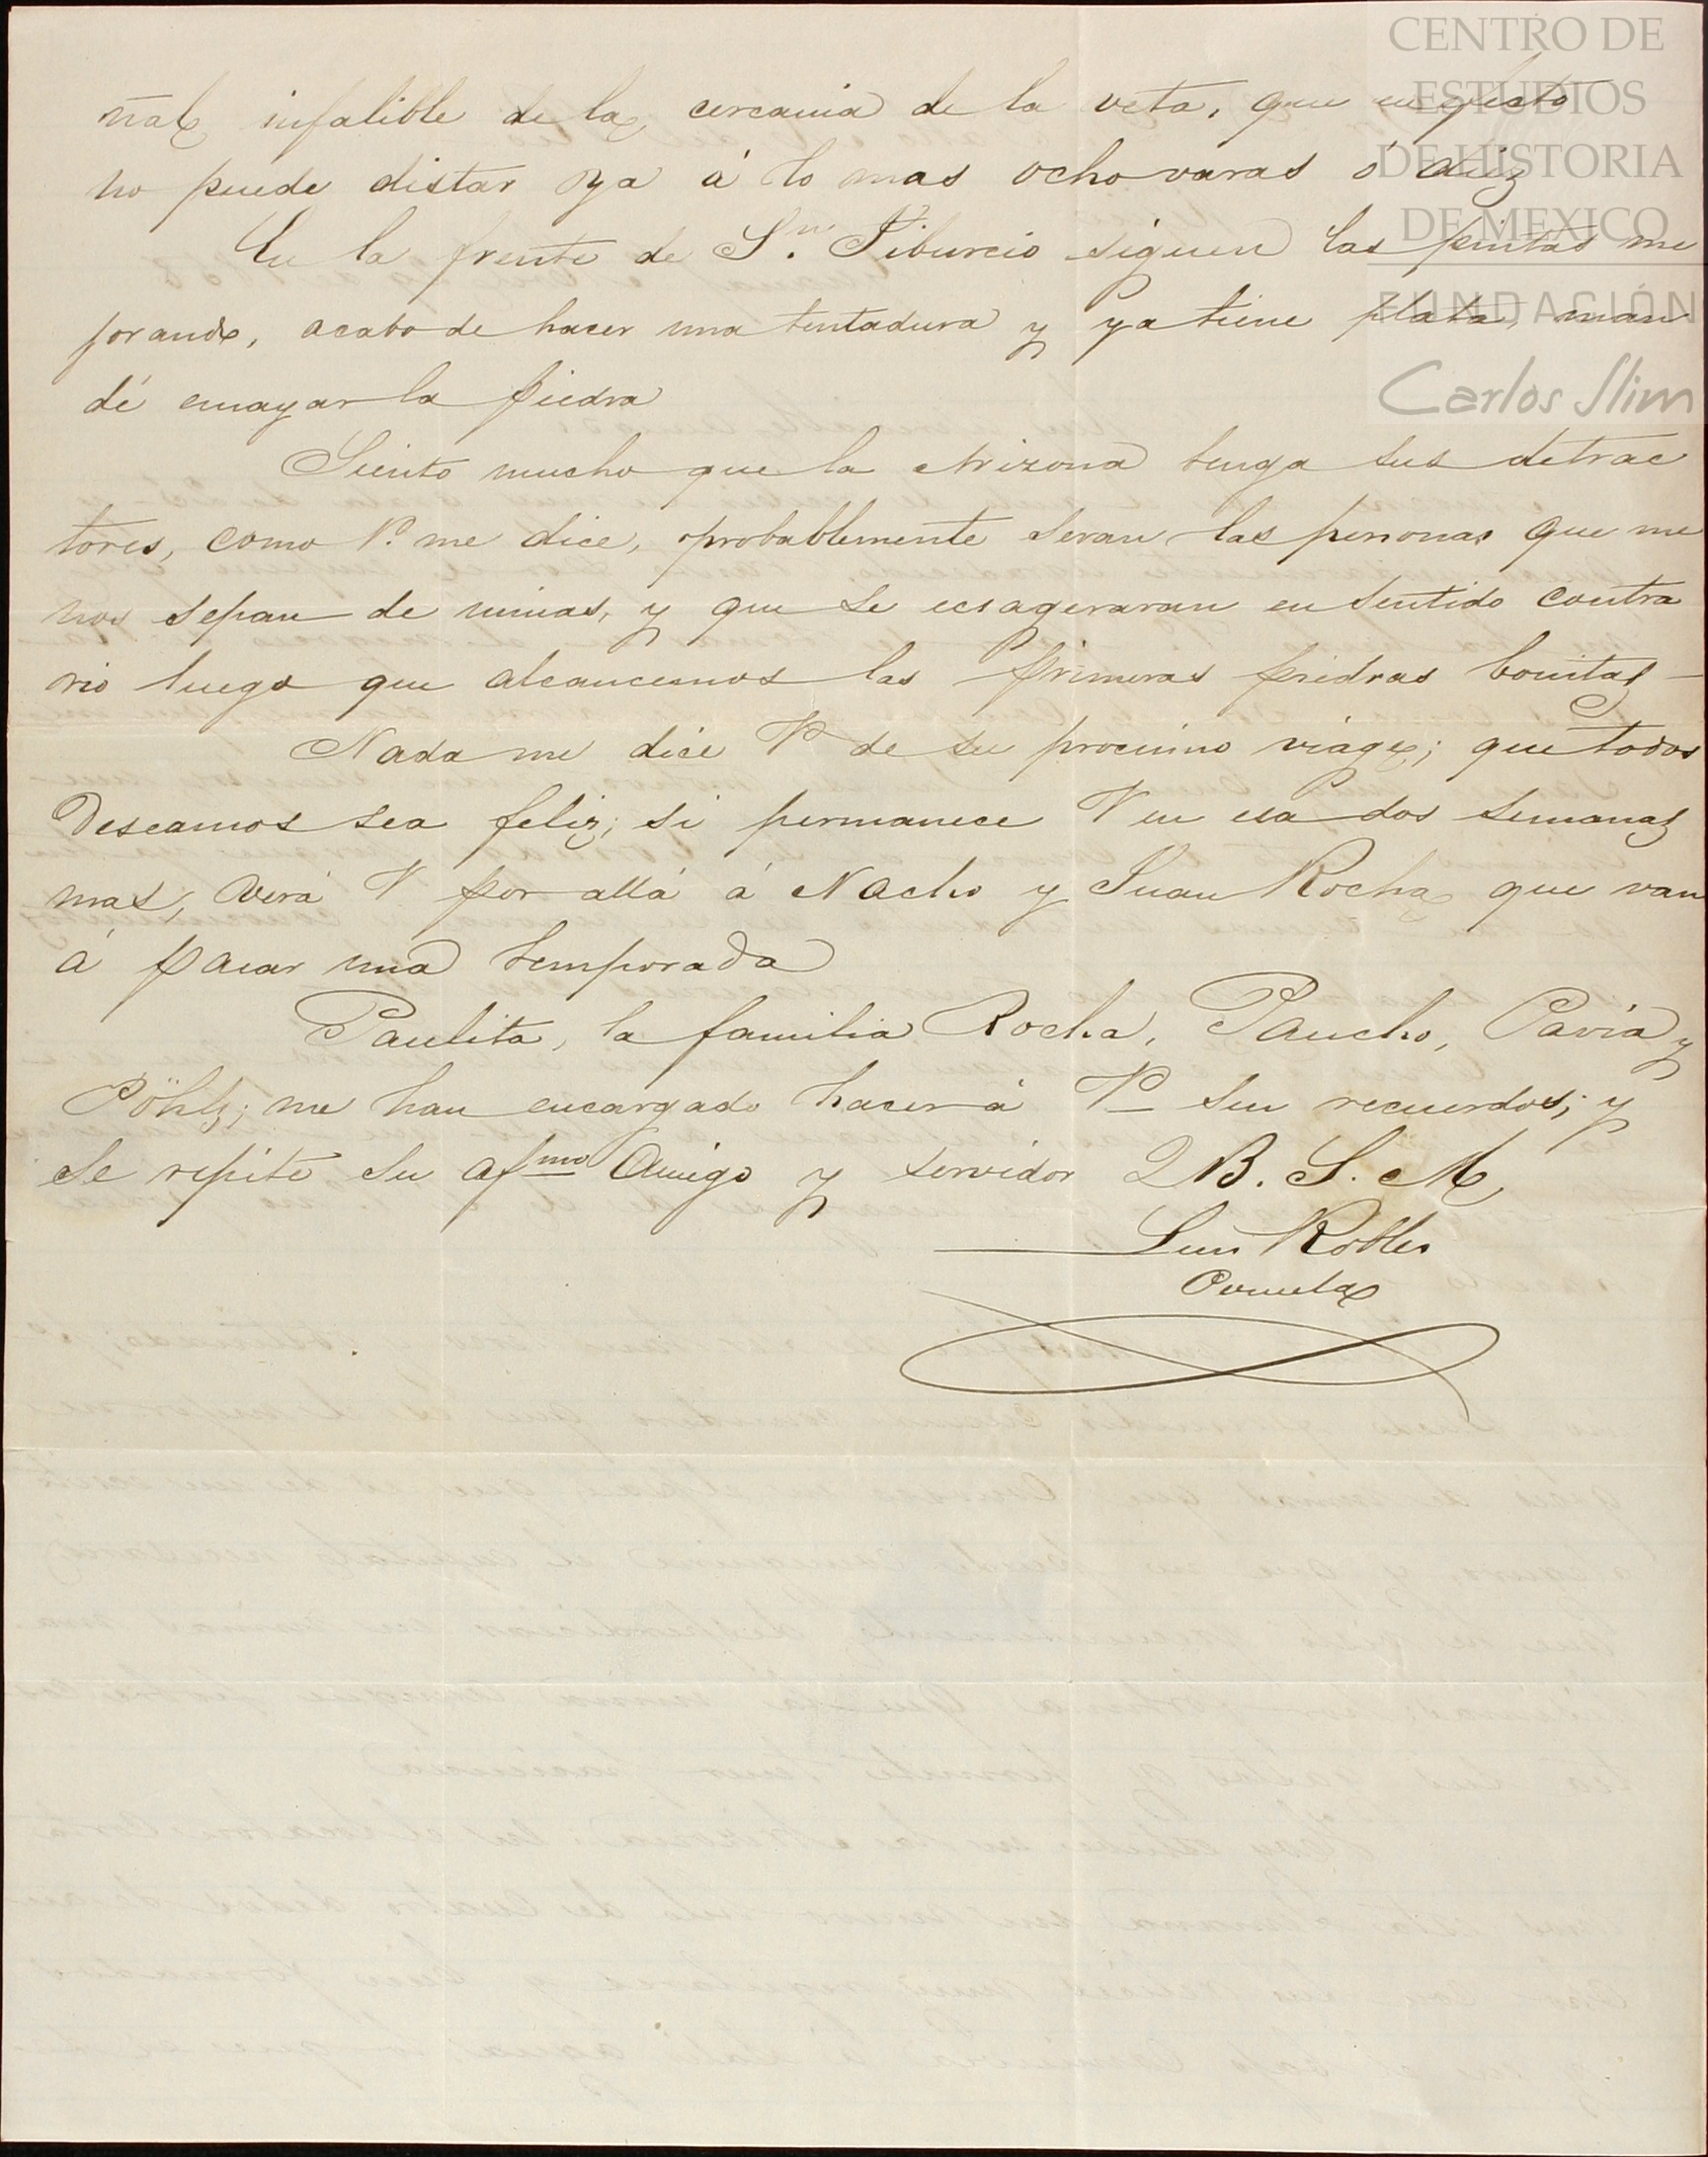 CENTRO DE
ESTUDIOS
DE HISTORIA
DE MEXICO
FUNDACIÓN
Carlos Slim
ñal infalible de la cercania de la veta, que en efecto
no puede distar ya á lo mas ocho varas ó diez
En la frente de S.n Tiburcio siguen las pintas me
jorando, acabo de hacer una tentadura y ya tiene plata, man
dé ensayar la piedra
Siento mucho que la Arizona tenga sus detrac
tores, como V. me dice, probablemente seran las personas que me
nos sepan de minas, y que se ecsageraran en sentido contra
rio luego que alcancemos las primeras piedras bonitas —
Nada me dice V de su procsimo viage; que todos
deseamos sea feliz; si permanece V en esa dos semanas
mas, verá V por allá á Nacho y Juan Rocha que van
á pasar una temporada
Paulita, la familia Rocha, Pancho, Pavia y
Pöhls; me han encargado hacer á V sus recuerdos; y
se repite su afmo Amigo y servidor Q B. S. M
Luis Robles
Pezuela